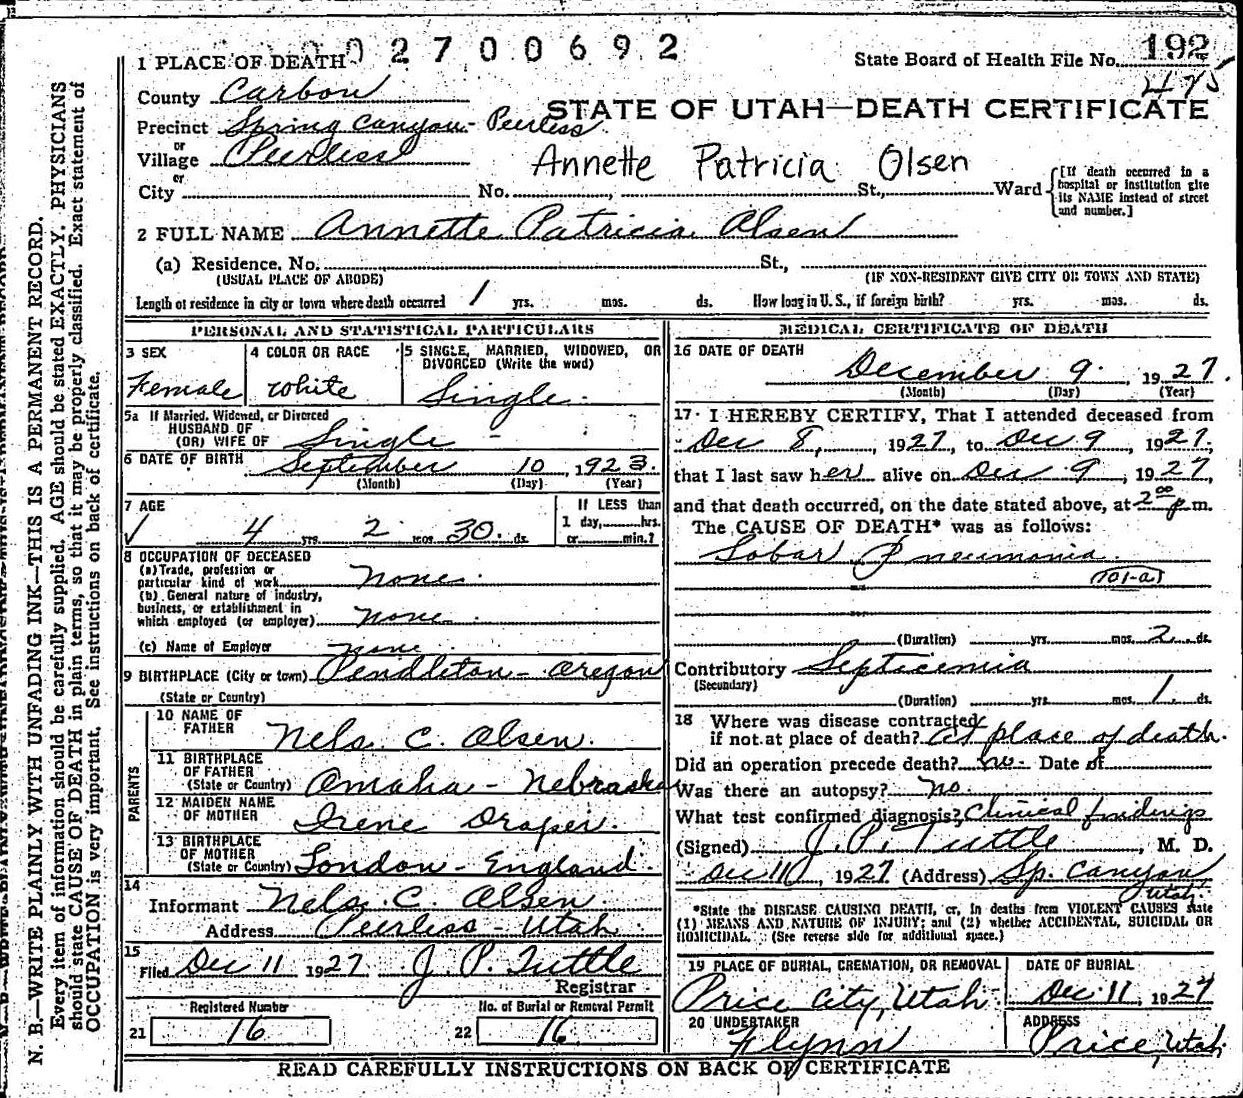 002700692
1 PLACE OF DEATH
State Board of Health File No. 192
475
County Carbon
STATE OF UTAH—DEATH CERTIFICATE
Precinct Spring Canyon - Peerless
or
Village Peerless
Annette Patricia Olsen
or
City No. , St., Ward
[If death occurred in a hospital or institution give its NAME instead of street and number.]
2 FULL NAME Annette Patricia Olsen
(a) Residence. No. St.,
(USUAL PLACE OF ABODE) (IF NON-RESIDENT GIVE CITY OR TOWN AND STATE)
Length of residence in city or town where death occurred 1 yrs. mos. ds. How long in U. S., if foreign birth? yrs. mos. ds.
PERSONAL AND STATISTICAL PARTICULARS
3 SEX
Female
4 COLOR OR RACE
White
5 SINGLE, MARRIED, WIDOWED, OR
DIVORCED (Write the word)
Single
5a If Married, Widowed, or Divorced
HUSBAND OF
(OR) WIFE OF Single -
6 DATE OF BIRTH September 10, 1923.
(Month) (Day) (Year)
7 AGE
√ 4 yrs. 2 mos. 30. ds.
If LESS than
1 day, hrs.
or min.?
8 OCCUPATION OF DECEASED
(a) Trade, profession or
particular kind of work none.
(b) General nature of industry,
business, or establishment in
which employed (or employer) none.
(c) Name of Employer none
9 BIRTHPLACE (City or town) Pendleton - Oregon
(State or Country)
PARENTS
10 NAME OF
FATHER Nels. C. Olsen.
11 BIRTHPLACE
OF FATHER
(State or Country) Omaha - Nebraska
12 MAIDEN NAME
OF MOTHER Irene Draper.
13 BIRTHPLACE
OF MOTHER
(State or Country) London - England.
14
Informant Nels. C. Olsen
Address Peerless - Utah
15
Filed Dec 11 1927 J P. Tuttle
Registrar
Registered Number
21 16
No. of Burial or Removal Permit
22 16
MEDICAL CERTIFICATE OF DEATH
16 DATE OF DEATH
December 9. , 1927.
(Month) (Day) (Year)
17 I HEREBY CERTIFY, That I attended deceased from
Dec 8, , 1927, to Dec 9 1927.
that I last saw her alive on Dec 9 , 1927,
and that death occurred, on the date stated above, at 2 00 p.m.
The CAUSE OF DEATH* was as follows:
Lobar Pneumonia
101-a
(Duration) yrs. mos. 2 ds.
Contributory Septicemia
(Secondary)
(Duration) yrs. mos. 1. ds.
18 Where was disease contracted
if not at place of death? at place of death.
Did an operation precede death? no- Date of
Was there an autopsy? no.
What test confirmed diagnosis? Clinical findings
(Signed) J. P. Tuttle , M. D.
Dec 11 , 1927 (Address) Sp. Canyon
Utah
*State the DISEASE CAUSING DEATH, or, in deaths from VIOLENT CAUSES state
(1) MEANS AND NATURE OF INJURY; and (2) whether ACCIDENTAL, SUICIDAL OR
HOMICIDAL. (See reverse side for additional space.)
19 PLACE OF BURIAL, CREMATION, OR REMOVAL
Price City, Utah
DATE OF BURIAL
Dec. 11, 1927
20 UNDERTAKER
Flynn
ADDRESS
Price, Utah
READ CAREFULLY INSTRUCTIONS ON BACK OF CERTIFICATE
N. B.—WRITE PLAINLY WITH UNFADING INK—THIS IS A PERMANENT RECORD.
Every item of information should be carefully supplied. AGE should be stated EXACTLY. PHYSICIANS
should state CAUSE OF DEATH in plain terms, so that it may be properly classified. Exact statement of
OCCUPATION is very important. See instructions on back of certificate.